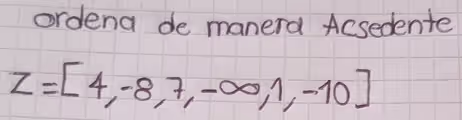 ordena de manera Acsedente
Z=[4,-8,7,-∞,1,-10]